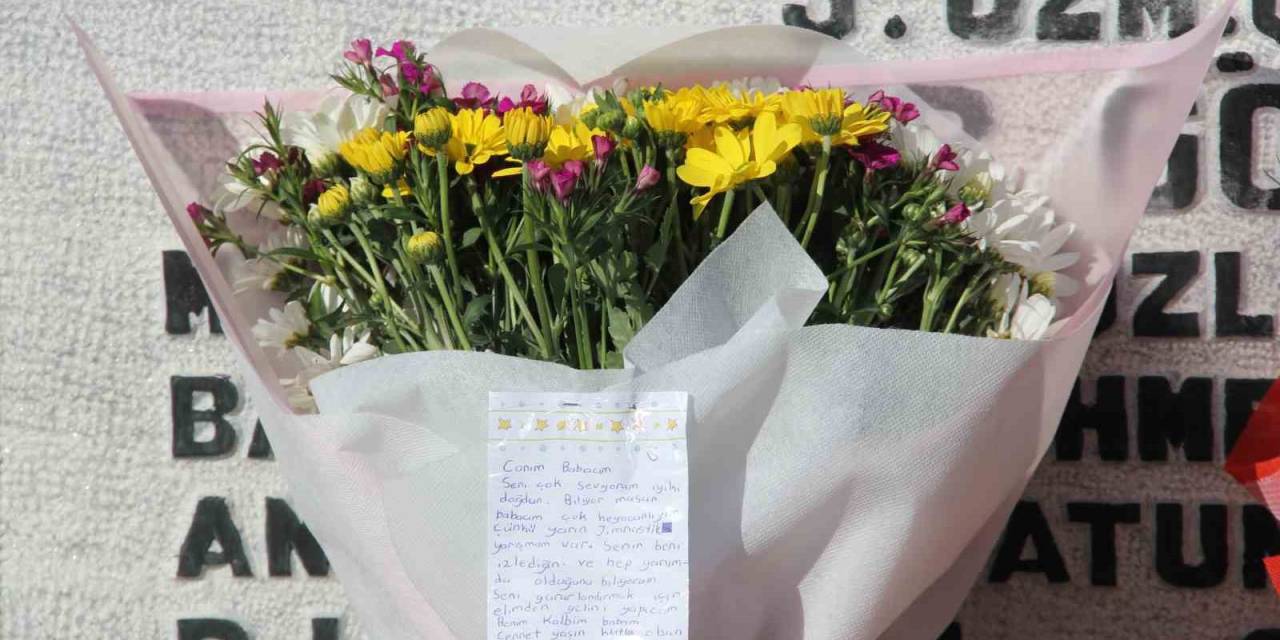 J.UZM.Ç
UZL
BA
HME
AN
ATUR
Canım Babacım
Seni çok seviyorum iyiki
doğdun. Biliyor musun
babacım çok heyecanlıyım
Çünkü yarın Jimnastik
yarışmam var. Senin beni
izlediğin ve hep yanım-
da olduğunu biliyorum
Seni gururlandırmak için
elimden geleni yapıcam
Benim Kalbim babam
Cennet yaşın kutlu olsun